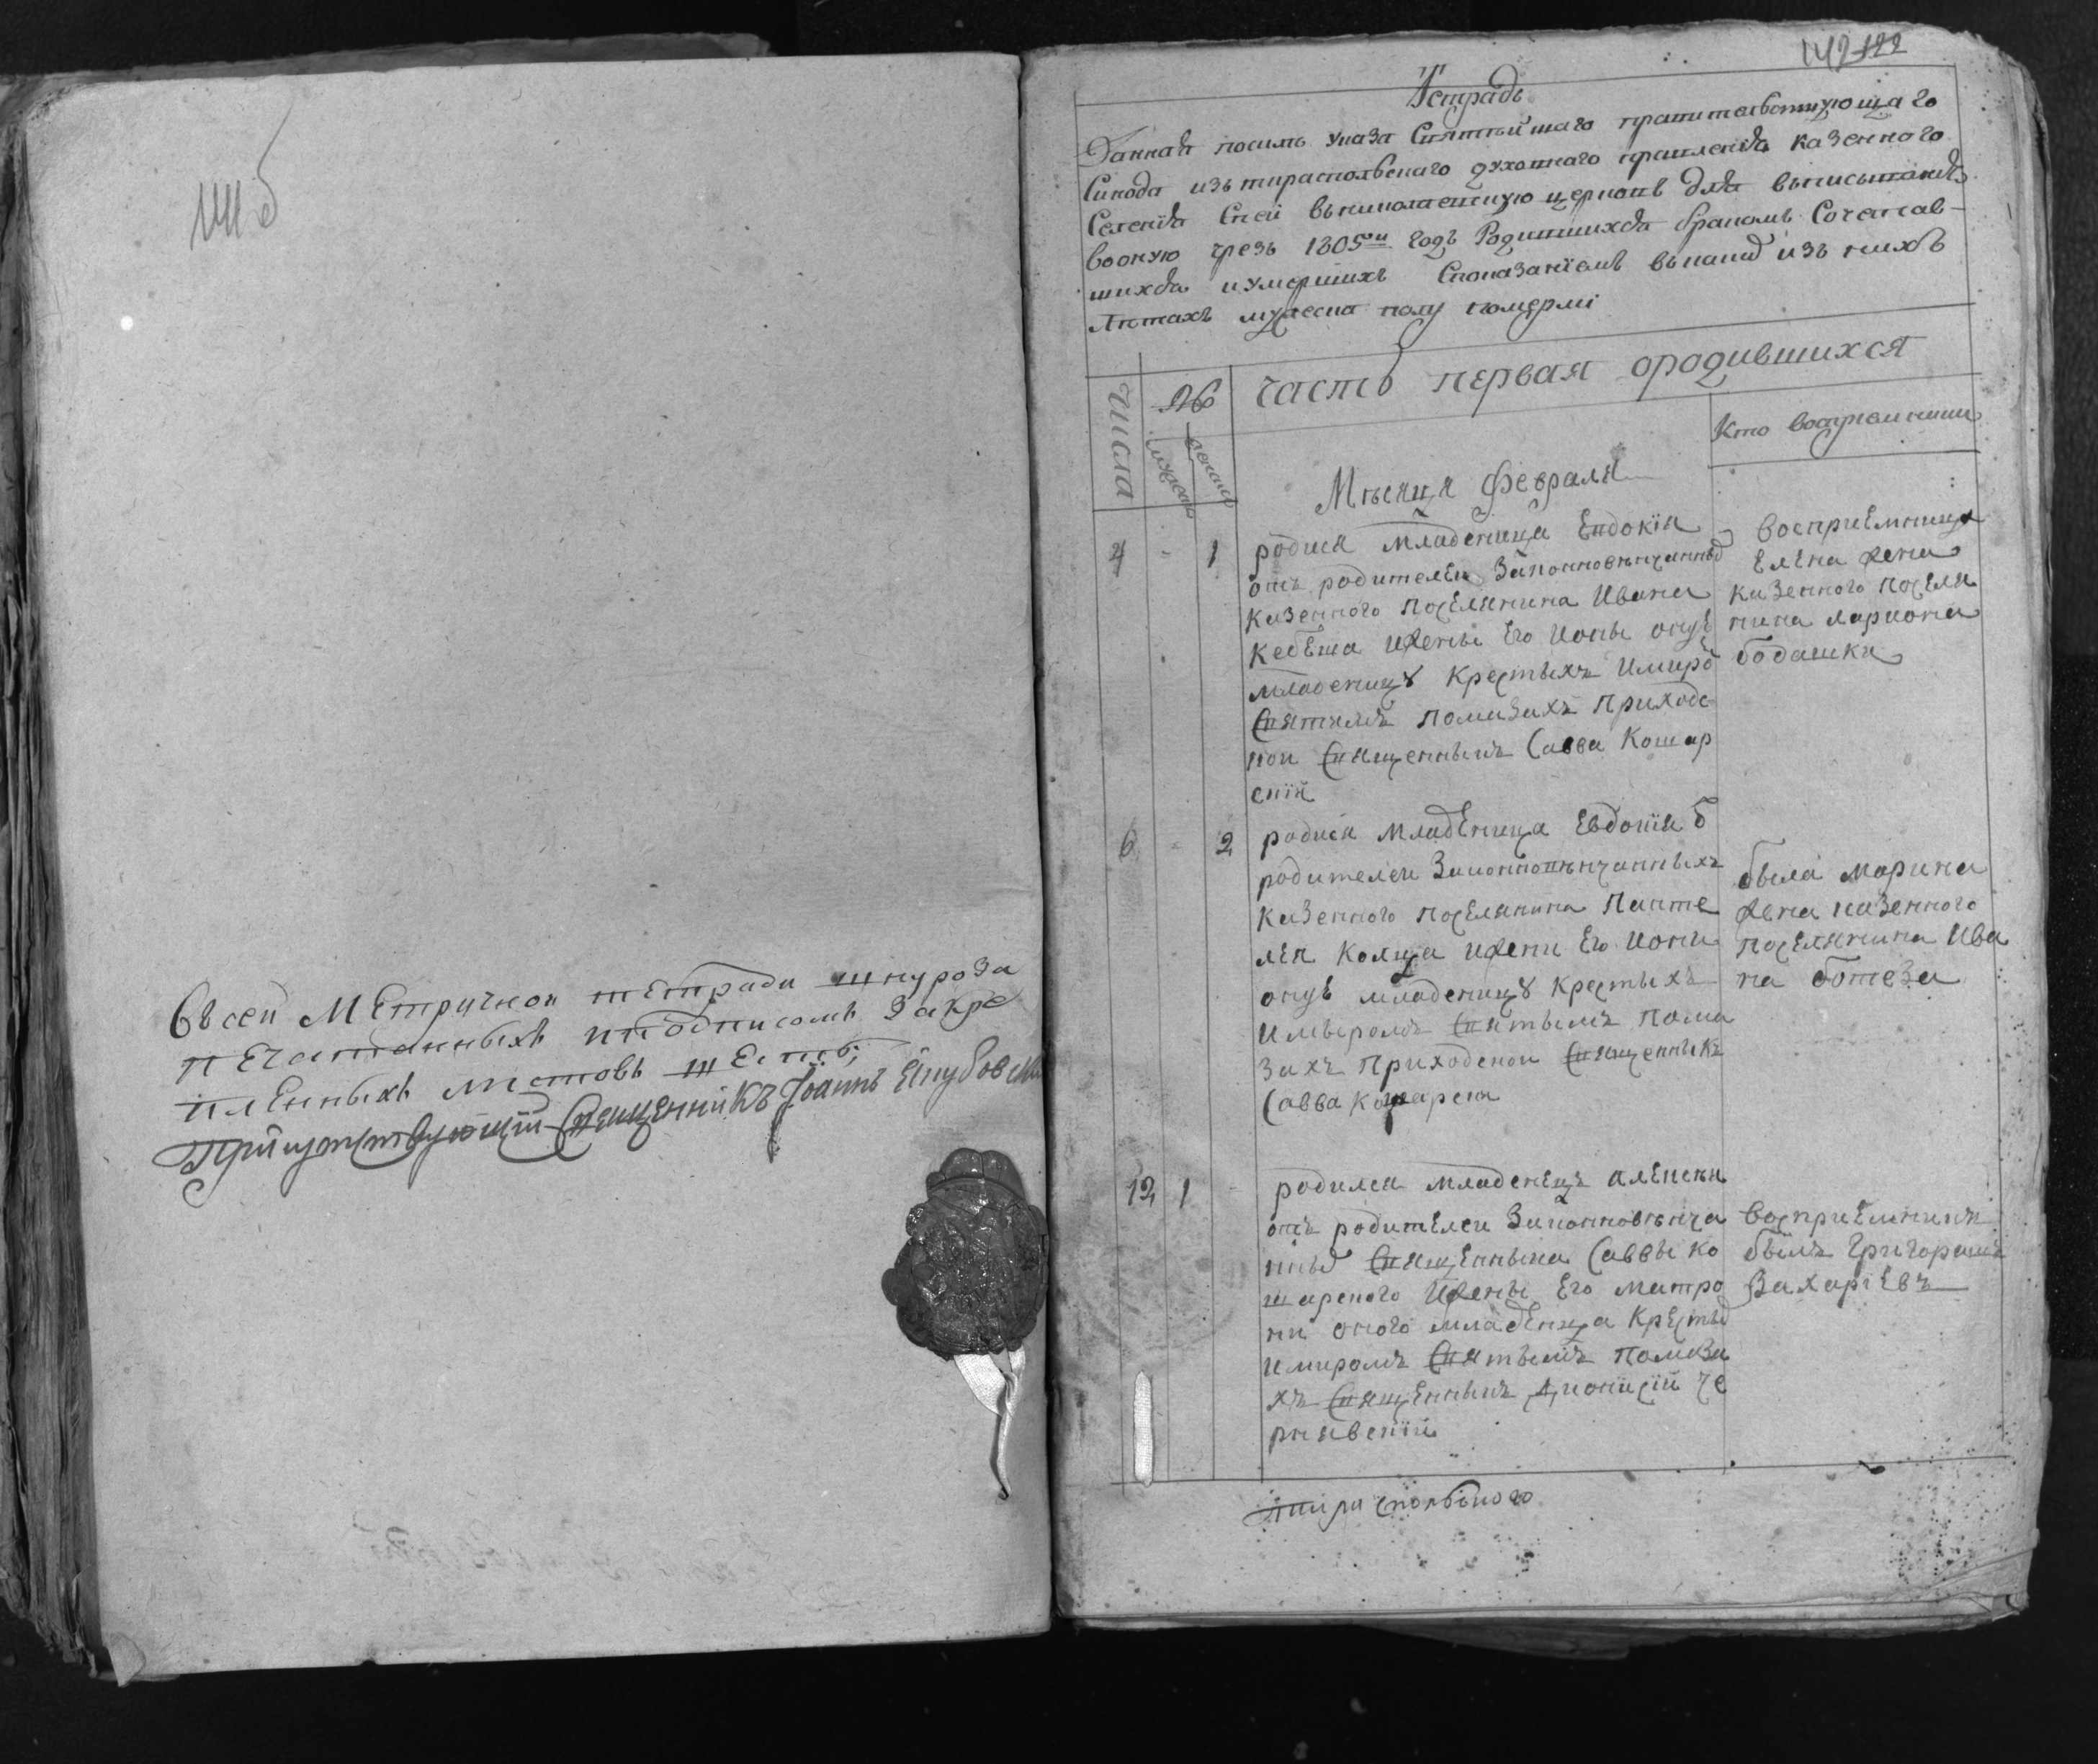 Въсей Метричнои тетради шнуроза
печатанныхъ иподписомъ закре
пленныхъ листовъ шесть;
Присутствующїй Священникъ Іоаннъ
142 122
Тетрадь
Данная посилѣ указа Святѣйшаго правительствующаго
Синода изътираспольскаго духовнаго правленїя казенного
Селенїя Спеи въниколаевскую церковь для вписыванїя
вооную чрезъ 1805ый годъ Родившихся бракомъ Сочетав-
шихся иумершихъ Споказанїемъ
лѣтахъ мужеска полу
числа
№
мужеска
женска
часть первая ородившихся
Кто восприемники
Мѣсяца Февраля
4 - 1
родися младеница Евдокїя
отъ родителеи Законновѣнчанныхъ
казенного поселянина Ивана
Кедѣша ижены Его Ионы онуѣ
младеницу Крестыхъ Имиро
Святымъ помазахъ Приходс
кои Священныкъ Савва Кошар
скїй
восприемница
Елена жена
казенного поселя
нина лариона
бодашка
6 - 2
родися младеница Евдокїя ѿ
родителеи Законновѣнчанныхъ
казенного поселянина Панте
лея Колца ижени Его Иони
онуѣ младеницу крестыхъ
имыромъ Святымъ пома
захъ Приходскои Священныкъ
Савва Кошарски
была марина
жена казенного
поселянина Ива
на ботеза
12 1 -
родился младенецъ алексѣи
отъ родителеи Законновѣнча
ныхъ Священныка Саввы ко
шарского Ижены Его Матро
ни оного младенца Крестыхъ
имиромъ Святымъ помаза
хъ Священныкъ Дионисїй че
рнявскїй
восприемникъ
былъ Григорашъ
Захарїевъ
тираспольского